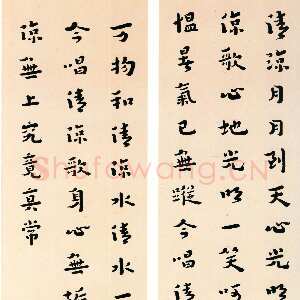 清涼月月到天心光明
涼歌心地光明一笑呵
愠暑氣已無蹤今唱清
万物和清涼水清水一
今唱清涼歌身心無垢
涼無上究竟真常
Shufawang.CN